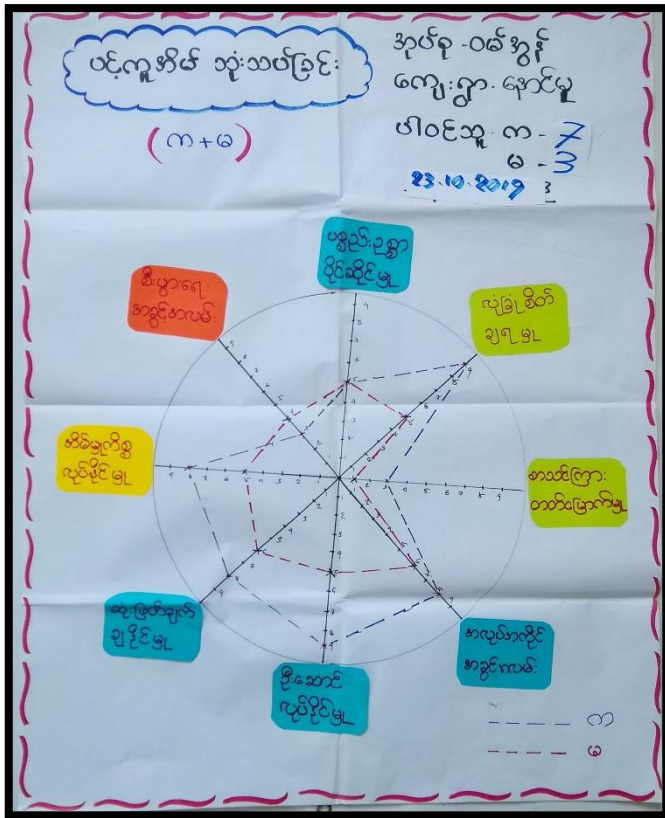 ပင့်ကူအိမ် သုံးသပ်ခြင်း
(က+မ)
အုပ်စု - ဝမ်အွန်
ကျေးရွာ - နောင်မူ
ပါဝင်သူ က - 7
မ - 3
23.10.2019
ပစ္စည်းဥစ္စာ
ပိုင်ဆိုင်မှု
လုံခြုံစိတ်
ချရမှု
စာသင်ကြား
တတ်မြောက်မှု
အလုပ်အကိုင်
အခွင့်အလမ်း
ဦးဆောင်
လုပ်နိုင်မှု
ဆုံးဖြတ်ချက်
ချနိုင်မှု
အိမ်မှုကိစ္စ
လုပ်နိုင်မှု
စီးပွားရေး
အခွင့်အလမ်း
က
မ